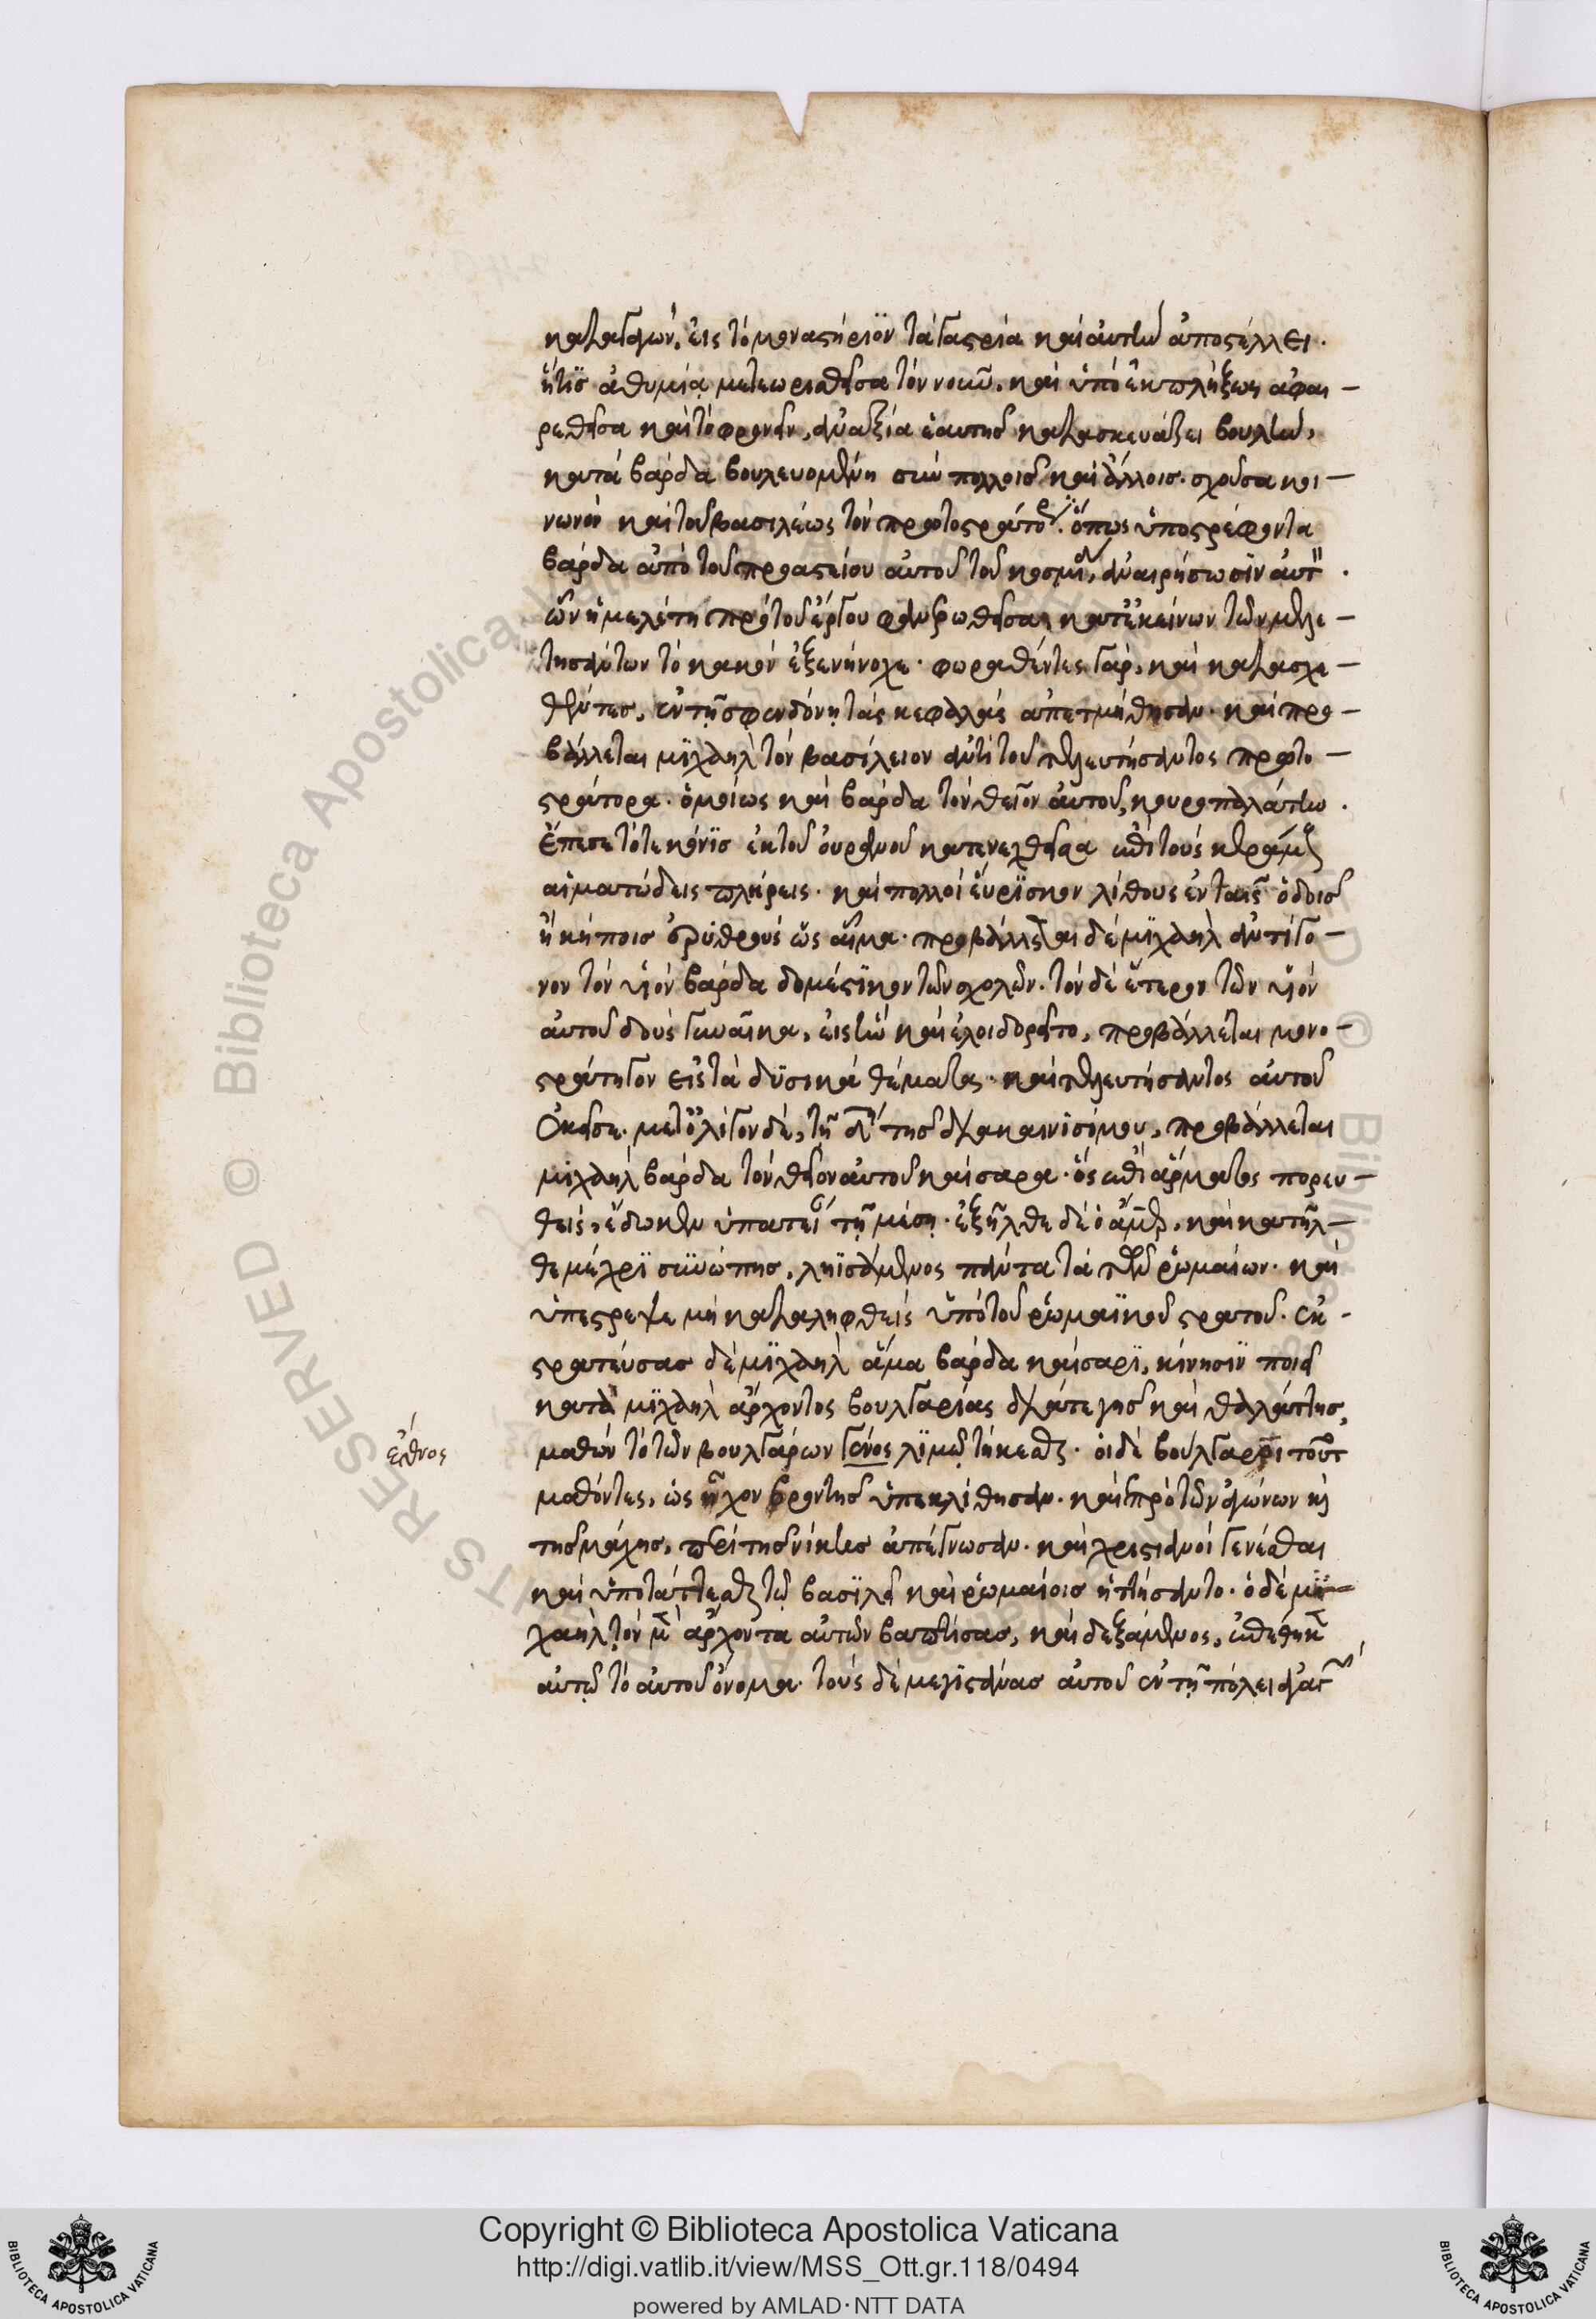 καταγαγών, εἰς τὸ μοναστήριον τὰ γαστρία καὶ αὐτὴν ἀποστέλλει.
ἥτις ἀθυμίᾳ μετεωρισθεῖσα τὸν νοῦν, καὶ ὑπὸ ἐκπλήξεως ἀφαι-
ρεθεῖσα καὶ τὸ φρονεῖν, ἀναξία ἑαυτῆς κατασκευάζει βουλὴν,
κατὰ βάρδα βουλευομένη σὺν πολλοῖς καὶ ἄλλοις. σχοῦσα κοι-
νωνὸν καὶ τοῦ βασιλέως τὸν πρωτοστράτορ. ὅπως ὑποστρέφοντα
βάρδα ἀπὸ τοῦ προαστείου αὐτοῦ τοῦ κοσμιδ, ἀναιρήσωσιν αὐτ.
ὧν ἡ μελέτη πρὸ τοῦ ἔργου φανερωθεῖσα, κατ' ἐκείνων τῶν μελε-
τησάντων τὸ κακὸν ἐξενήνοχε. φωραθέντες γὰρ, καὶ κατασχε-
θέντες, ἐν τῇ σφενδόνῃ τὰς κεφαλὰς ἀπετμήθησαν. καὶ προ-
βάλλεται μιχαὴλ τὸν βασίλειον ἀντὶ τοῦ τελευτήσαντος πρωτο-
στράτορα. ὁμοίως καὶ βάρδα τὸν θεῖον αὐτοῦ, κουροπαλάτην.
ἔπεσε τότε κόνις ἐκ τοῦ οὐρανοῦ κατενεχθεῖσα ἐπὶ τοὺς κεράμους
αἱματώδεις πλήρεις. καὶ πολλοὶ εὕρισκον λίθους ἐν ταῖς ὁδοῖς
ἢ κήποις ἐρυθροὺς ὡς αἷμα. προβάλλεται δὲ μιχαὴλ ἀντίγο-
νον τὸν υἱὸν βάρδα δομέστικον τῶν σχολῶν. τὸν δὲ ἕτερον τῶν υἱὸν
αὐτοῦ δοὺς γυναῖκα, εἰς ἣν καὶ ἐλοιδορεῖτο, προβάλλεται μονο-
στράτηγον εἰς τὰ δυσικὰ θέματα. καὶ τελευτήσαντος αὐτοῦ
ἐκεῖσε. μετ' ὀλίγον δὲ, τῇ τῆς διακαινισίμου, προβάλλεται
μιχαὴλ βάρδα τὸν θεῖον αὐτοῦ καίσαρα. ὃς ἐπὶ ἅρματος πορευ-
θεὶς, ἔδωκεν ὑπατεί τῇ μέσῃ. ἐξῆλθε δὲ ὁ ἄμερ, καὶ κατῆλ-
θε μέχρι σινώπης, ληϊσάμενος πάντα τὰ τῶν ῥωμαίων. καὶ
ὑπέστρεψε μὴ καταληφθεὶς ὑπὸ τοῦ ῥωμαϊκοῦ στρατοῦ. ἐκ-
στρατεύσας δὲ μιχαὴλ ἅμα βάρδα καίσαρι, κίνησιν ποιεῖ
κατὰ μιχαὴλ ἄρχοντος βουλγαρίας διά τε γῆς καὶ θαλάττης,
μαθὼν τὸ τῶν βουλγάρων γένος λιμῷ τήκεσθαι. οἱ δὲ βούλγαροι τοῦτ
ἔθνος
μαθόντες, ὡς ἦχον βροντῆς ὑπεκλίθησαν. καὶ πρὸ τῶν ἀγώνων καὶ
τῆς μάχης, περὶ τῆς νίκης ἀπέγνωσαν. καὶ χριστιανοὶ γενέσθαι
καὶ ὑποτάττεσθαι τῷ βασιλεῖ καὶ ῥωμαίοις ᾐτήσαντο. ὁ δὲ μι-
χαὴλ τὸν μὲν ἄρχοντα αὐτῶν βαπτίσας, καὶ δεξάμενος, ἐπέθηκεν
αὐτῷ τὸ αὐτοῦ ὄνομα. τοὺς δὲ μεγιστάνας αὐτοῦ ἐν τῇ πόλει